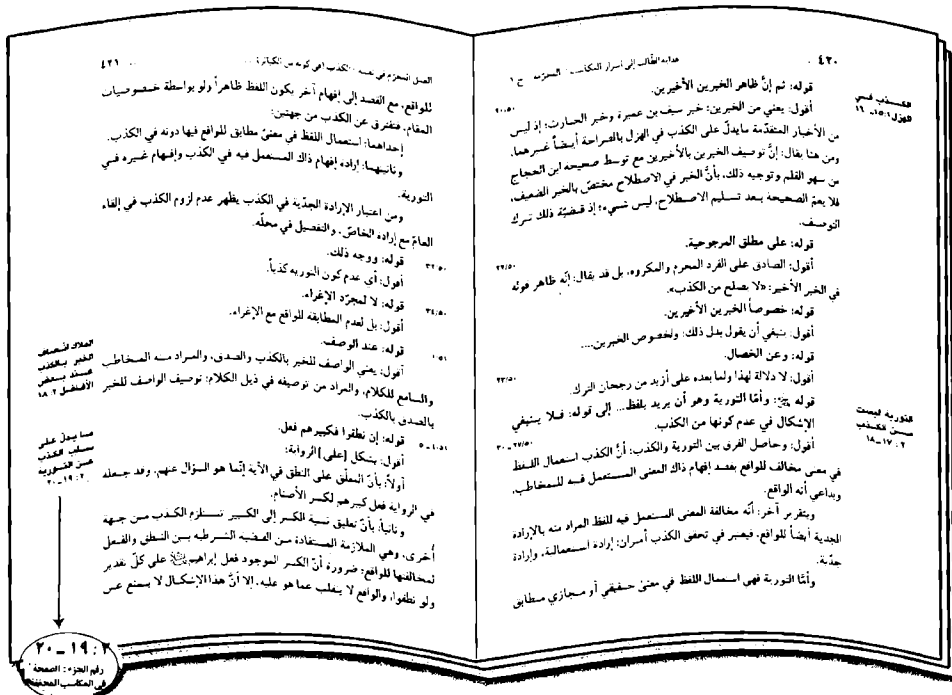 ٤٢٠
هداية الطالب إلى أسرار المكاسب / المحرمة ـ ج ١
قوله: ثم إنّ ظاهر الخبرين الأخيرين.
٢٠/٥٠
أقول: يعني من الخبرين: خبر سيف بن عميرة وخبر الحارث؛ إذ ليس
الكــذب فــي
الهزل ١٥:٢ـ١٦
من الأخبار المتقدّمة ما يدلّ على الكذب في الهزل بالصراحة أيضاً غيرهما،
ومن هنا يقال: إنّ توصيف الخبرين بالأخيرين مع توسط صحيحة ابن الحجاج
من سهو القلم وتوجيه ذلك، بأنّ الخبر في الاصطلاح مختصّ بالخبر الضعيف،
فلا يعمّ الصحيحة بعد تسليم الاصطلاح، ليس شيء؛ إذ قضيّة ذلك ترك
التوصيف.
قوله: على مطلق المرجوحية.
٢٢/٥٠
أقول: الصادق على الفرد المحرم والمكروه، بل قد يقال: إنّه ظاهر قوله
في الخبر الأخير: «لا يصلح من الكذب».
قوله: خصوصاً الخبرين الأخيرين.
أقول: ينبغي أن يقول بدل ذلك: ولخصوص الخبرين....
قوله: وعن الخصال.
٢٣/٥٠
أقول: لا دلالة لهذا ولما بعده على أزيد من رجحان الترك.
قوله: وأمّا التورية وهو أن يريد بلفظ... إلى قوله: فــلا يــنبغي
التورية ليست
مــن الكــذب
١٧:٢ـ١٨
الإشكال في عدم كونها من الكذب.
٢٧/٥٠ـ٣٠
أقول: وحاصل الفرق بين التورية والكذب: أنّ الكذب استعمال اللــفظ
في معنى مخالف للواقع بقصد إفهام ذاك المعنى المستعمل فــيه للــمخاطب،
وبداعي أنه الواقع.
وبتقرير آخر: أنّه مخالفة المعنى المستعمل فيه للفظ المراد منه بالإرادة
الجدية أيضاً للواقع، فيعتبر في تحقق الكذب أمران: إرادة استعمالية، وإرادة
جدّية.
وأمّا التورية فهي استعمال اللفظ في معنىً حقيقي أو مجازي مطابق
العمل المحرّم في نفسه / الكذب / في كونه من الكبائر
٤٢١
للواقع، مع القصد إلى إفهام آخر يكون اللفظ ظاهراً ولو بواسطة خصوصيات
المقام، فتفترق عن الكذب من جهتين:
إحداهما: استعمال اللفظ في معنىً مطابق للواقع فيها دونه في الكذب.
وثانيتهما: إرادة إفهام ذاك المستعمل فيه في الكذب وإفهام غيره فــي
التورية.
ومن اعتبار الإرادة الجدّية في الكذب يظهر عدم لزوم الكذب في إلقاء
العامّ مع إرادة الخاصّ، والتفصيل في محلّه.
قوله: ووجه ذلك.
٣٢/٥٠
أقول: أي عدم كون التورية كذباً.
قوله: لا لمجرّد الإغراء.
٣٤/٥٠
أقول: بل لعدم المطابقة للواقع مع الإغراء.
قوله: عند الوصف.
١/٥١
أقول: يعني الواصف للخبر بالكذب والصدق، والمراد منــه المــخاطب
الملاك اتّــصاف
الخبر بالكذب
عــند بــعض
الأفــاضل ١٨:٢
والسامع للكلام، والمراد من توصيفه في ذيل الكلام: توصيف الواصف للخبر
بالصدق بالكذب.
قوله: إن نطقوا فكبيرهم فعل.
١/٥١ـ٥
أقول: يشكل [على] الرواية:
مــا يــدلّ عــلى
سلب الكذب
عن التورية
١٩:٢ـ٢٠
أولاً: بأنّ المعلّق على النطق في الآية إنّما هو السؤال عنهم، وقد جــعله
في الرواية فعل كبيرهم لكسر الأصنام.
وثانياً: بأنّ تعليق نسبة الكسر إلى الكبير تستلزم الكذب من جهة
أخرى، وهي الملازمة المستفادة من القضية الشرطية بين النطق والفــعل
لمخالفتها للواقع؛ ضرورة أنّ الكسر الموجود فعل إبراهيم على كلّ تقدير
ولو نطقوا، والواقع لا ينقلب عما هو عليه، إلا أنّ هذا الإشكال لا يمنع عن
١٩:٢ ـ ٢٠
رقم الجزء: الصفحة
في المكاسب المحققة